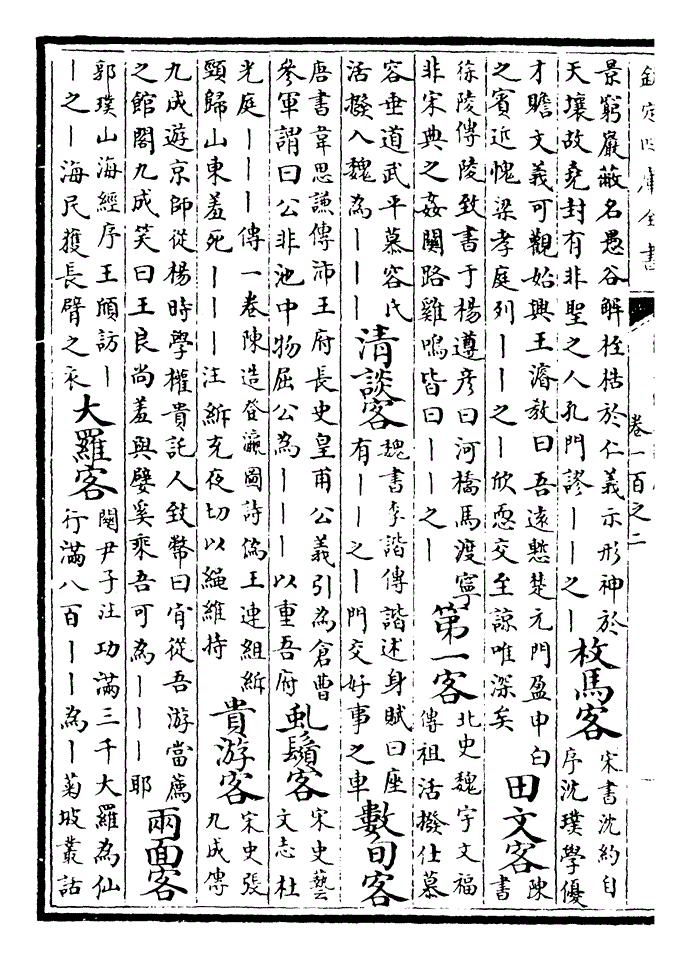 欽定四庫全書
卷一百之二
景窮巖蔽名愚谷解桎梏於仁義示形神於
天壤故堯封有非聖之人孔門謬——之—
枚馬客
宋書沈約自
序沈璞學優
才贍文義可觀始興王濬教曰吾遠慙楚元門盈申白
之賓近愧梁孝庭列——之—欣恧交至諒唯深矣
田文客
陳
書
徐陵傳陵致書于楊遵彥曰河橋馬渡寧
非宋典之姦關路雞鳴皆曰——之—
第一客
北史魏宇文福
傳祖活撥仕慕
容垂道武平慕容氏
活撥入魏為———
清談客
魏書李諧傳諧述身賦曰座
有——之—門交好事之車
數旬客
唐書韋思謙傳沛王府長史皇甫公義引為倉曹
參軍謂曰公非池中物屈公為———以重吾府
虬鬚客
宋史藝
文志杜
光庭———傳一卷陳造登瀛圖詩偽王連組紲
頸歸山東羞死———注紲充夜切以繩維持
貴游客
宋史張
九成傳
九成遊京師從楊時學權貴託人致幣曰肯從吾游當薦
之館閣九成笑曰王良尚羞與嬖奚乘吾可為———耶
兩面客
郭璞山海經序王頎訪—
—之—海民獲長臂之衣
大羅客
關尹子注功滿三千大羅為仙
行滿八百——為—菊坡叢話